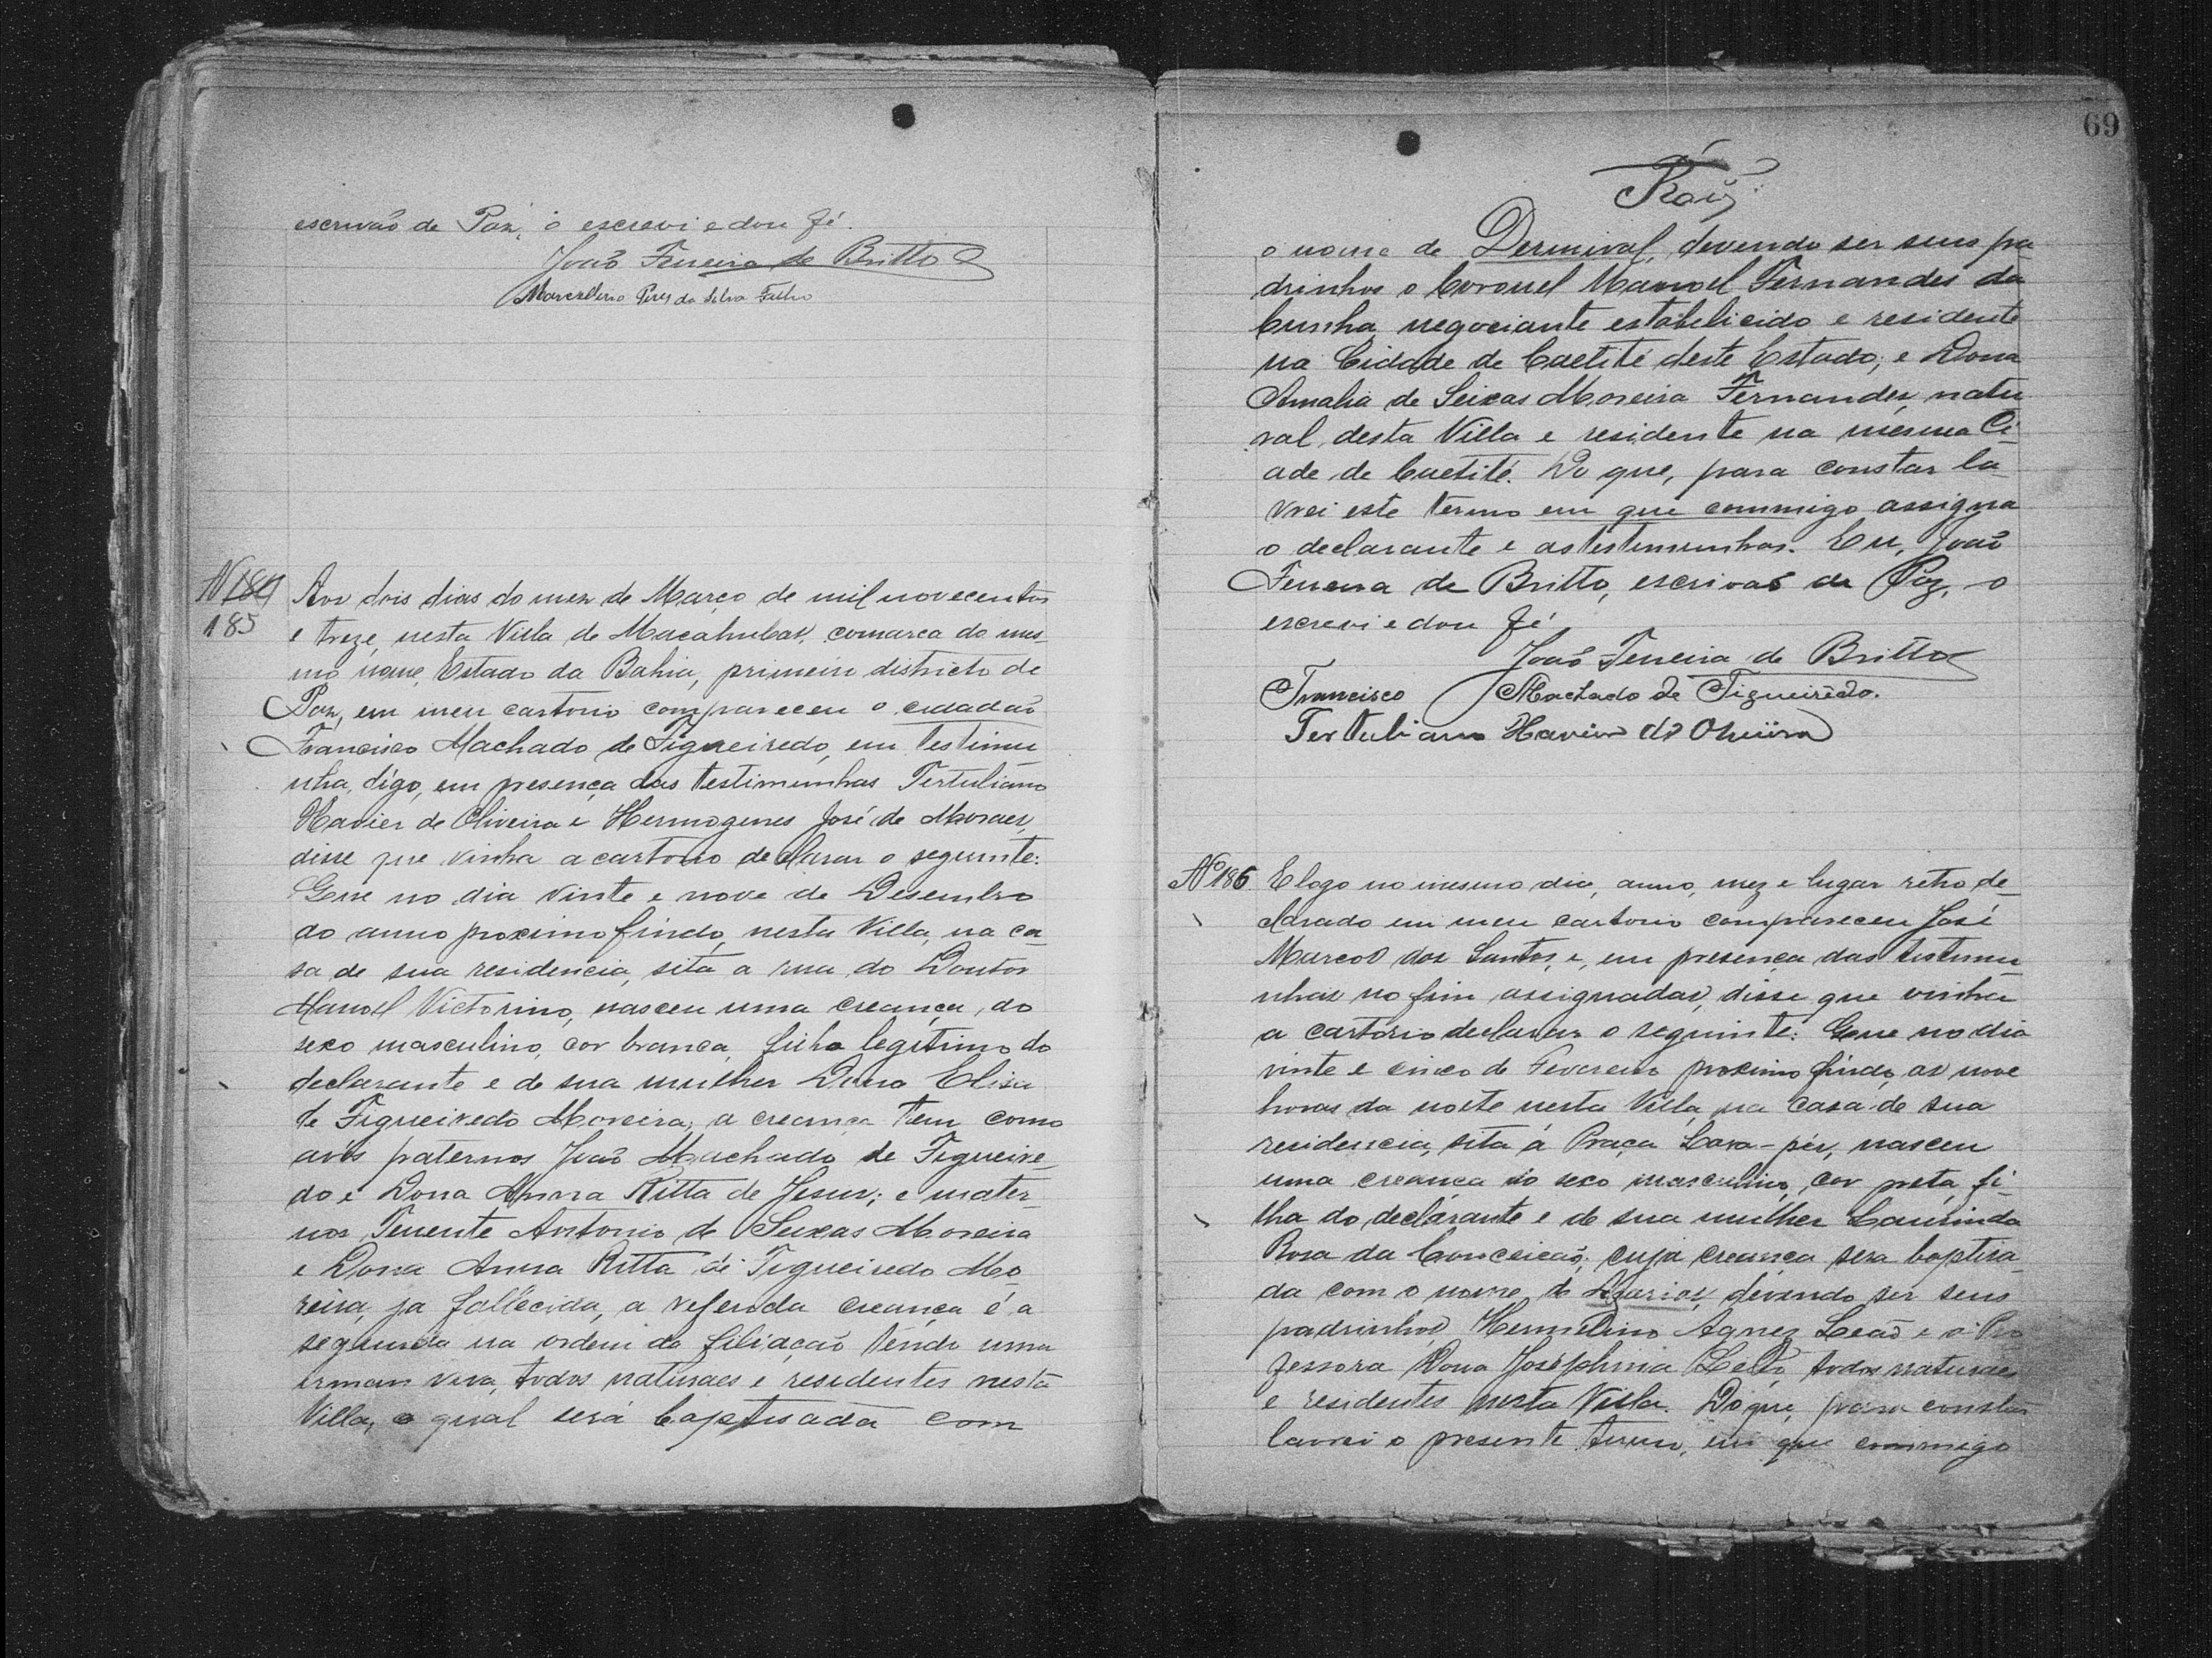 escrivão de Paz, o escrevi e dou fé.
João Ferreira de Britto
Marcellino Pires da Silva Filho
Nº 184
185
Aos dois dias do mez de Março de mil novecentos
e treze, nesta Villa de Macahubas, comarca do mes-
mo nome, Estado da Bahia, primeiro districto de
Paz, em meu cartorio compareceu o cidadão
Francisco Machado de Figueiredo, em testimu
nha, digo, em presença das testimunhas Tertuliano
Xavier de Oliveira e Hermogenes José de Moraes,
disse que vinha a cartorio declarar o seguinte:
Que no dia vinte e nove de Desembro
do anno proximo findo, nesta Villa, na ca-
sa de sua residencia, sita a rua do Doutor
Manoel Victorino, nasceu uma creança, do
sexo masculino, cor branca, filho legitimo do
declarante e de sua mulher Dona Elisa
de Figueiredo Moreira; a creança tem como
avós paternos João Machado de Figueire-
do e Dona Anna Ritta de Jesus; e mater-
nos Tenente Antonio de Seixas Moreira
e Dona Anna Ritta de Figueiredo Mo-
reira, ja fallecida, a referida creança é a
segunda na ordem da filiação tendo uma
irman viva, todos naturaes e residentes nesta
Villa, a qual será baptisada com
69
o nome de Dermival, devendo ser seus pa-
drinhos o Coronel Manoel Fernandes da
Cunha, negociante estabelicido e residente
na Cidade de Caetité deste Estado; e Dona
Amalia de Seixas Moreira Fernandes, natu
ral desta Villa e residente na mesma Ci-
ade de Caetité. Do que, para constar la-
vrei este termo em que commigo assigna
o declarante e as testemunhas. Eu, João
Ferreira de Britto, escrivão de Paz, o
escrevi e dou fé
João Ferreira de Britto
Francisco Machado de Figueirêdo.
Tertuliano Xavier de Oliveira
Nº 186
E logo no mesmo dia, anno, mez e lugar retro de-
clarado em meu cartorio compareceu José
Marcos dos Santos, e, em presença das testemu
nhas no fim assignadas, disse que vinha
a cartorio declarar o seguinte: Que no dia
vinte e cinco de Fevereiro proximo findo, as nove
horas da noite nesta Villa, na casa de sua
residencia, sita á Praça Lava-pés, nasceu
uma creança do sexo masculino, cor preta, fi-
lha do declarante e de sua mulher Laurinda
Rosa da Conceicão; cuja creança sera baptisa-
da com o nome de Azarias, devendo ser seus
padrinhos Hermelino Agnez Leão e a Pro
fessora Dona Josephina Leão, todos naturaes
e residentes nesta Villa. Do que, para constar
lavrei o presente termo, em que commigo